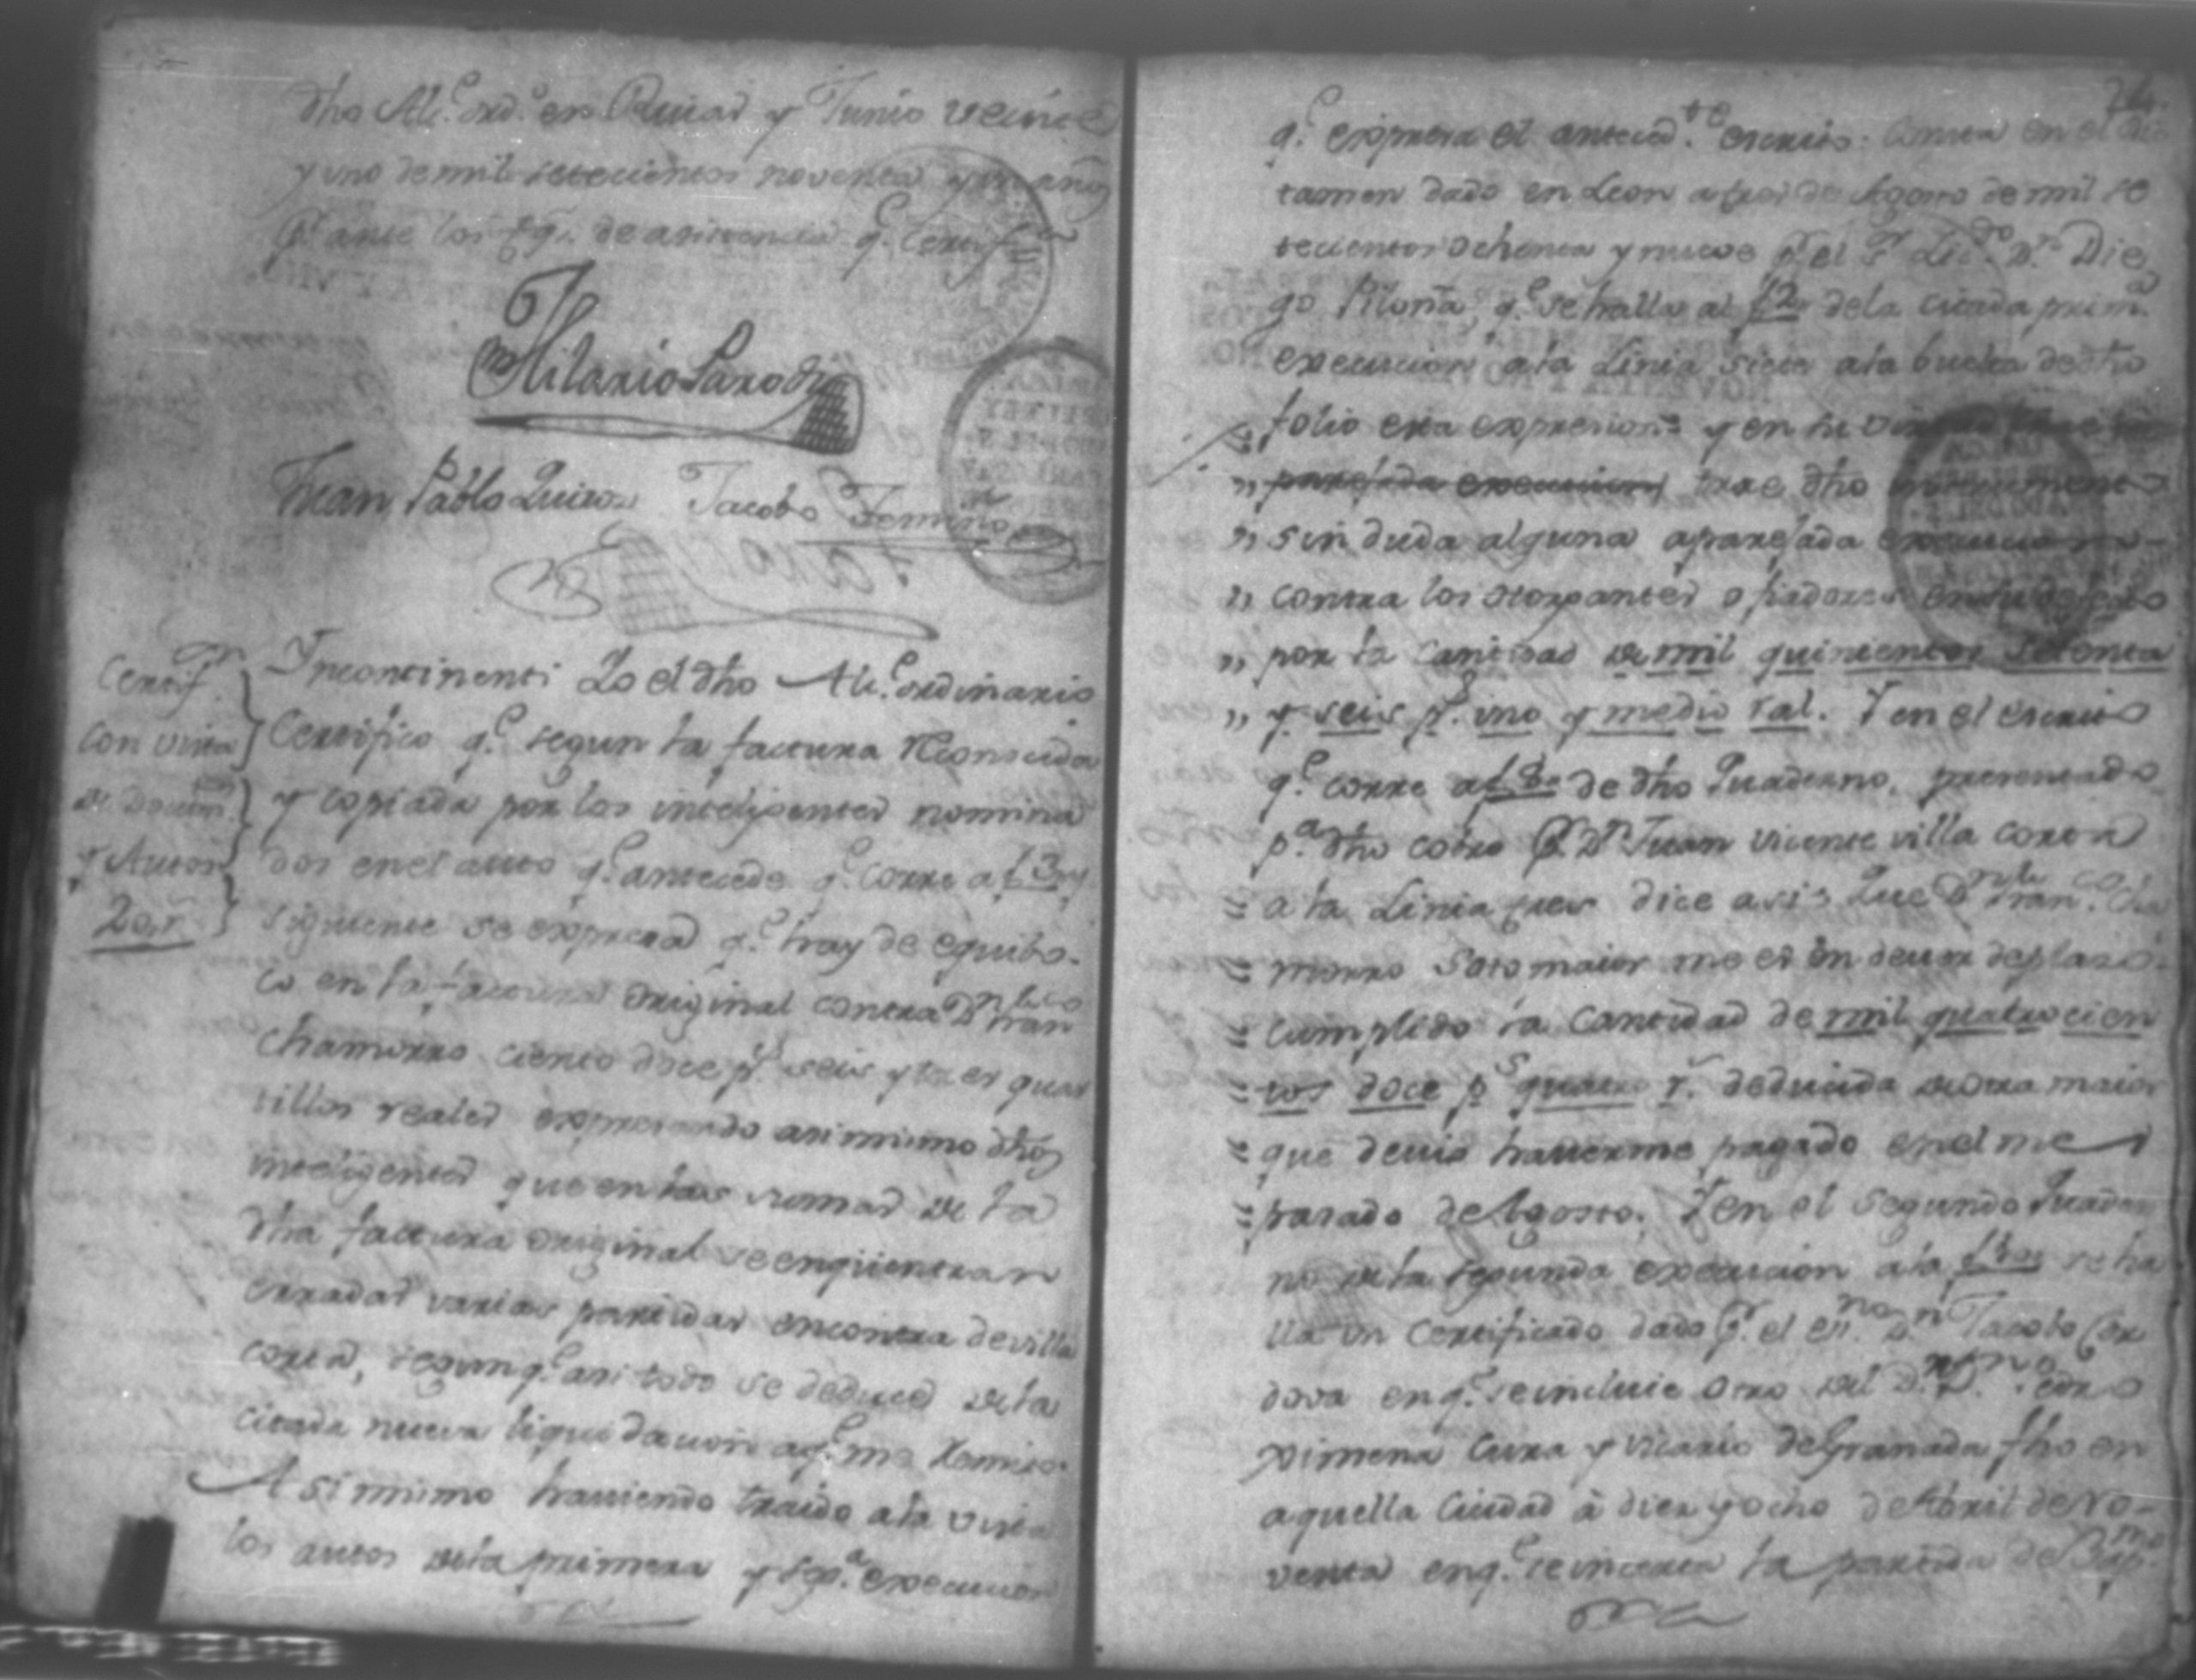 dho Alc.e ord.o en Rivas y Junio veinte
y uno de mil setecientos noventa y un años
p.r ante los tgs. de asistencia q.e certifico
Hilario Parodi
Juan Pablo Quiros Jacobo
Certif.on
con vista
de docum.
y Autos
2o, r.
Yncontinenti Yo el dho Alc.e ordinario
Certifico q.e segun la factura reconocida
y copiada por los inteligentes nomina
dos en el auto q.e antecede q.e corre a f 3 y
siguiente se expresa q.e hay de equibo.
co en la factura original contra D.n Fran.co
Chamorro ciento doce p.s seis y tres quar
tillos reales expresando asimismo dhos
inteligentes que en las sumas de la
dha factura original se enqüentran
erradas varias partidas en contra de villa
corta, segun q.e asi todo se deduce de la
citada nueva liquidacion a q.e me remito.
Asi mismo haviendo traido a la vista
los autos de la primera y seg.a execucion
74.
q.e expresa el anteced.te escrito: consta en el dic
tamen dado en Leon a tres de Agosto de mil se
tecientos ochenta y nueve p.r el S.r Lic.do D.n Die
go Piloña, q.e se halla al f 2 de la citada prim.a
execucion a la Linia siete a la buelta de dho
folio esta expresion = y en su
" parejada execucion trae dho instrumento
" sin duda alguna aparejada execucion
" contra los otorgantes o fiadores
" por la cantidad de mil quinientos setenta
" y seis p.s uno y medio r.al. Y en el escrito
q.e corre a f de dho Quaderno, presentado
p.a dho cobro p.r D.n Juan Vicente villa corta
= a la Linia tres dice asi = Que D.n Fran.co Cha
= morro Sotomaior me es en dever de plazo
= cumplido la cantidad de mil quatrocien
= tos doce p.s quatro r.s deducida de otra maior
= que devió haverme pagado en el mes
= pasado de Agosto. Y en el segundo Quader
no de la segunda execucion a la f se ha
lla un Certificado dado p.r el es.no D.n Jacobo Cor
dova en q.e se incluie otro del D.n Pedro
Ximena Cura y Vicario de Granada fho en
aquella Ciudad à diez y ocho de Abril de No-
venta en q.e se incerta la partida de Bap.mo